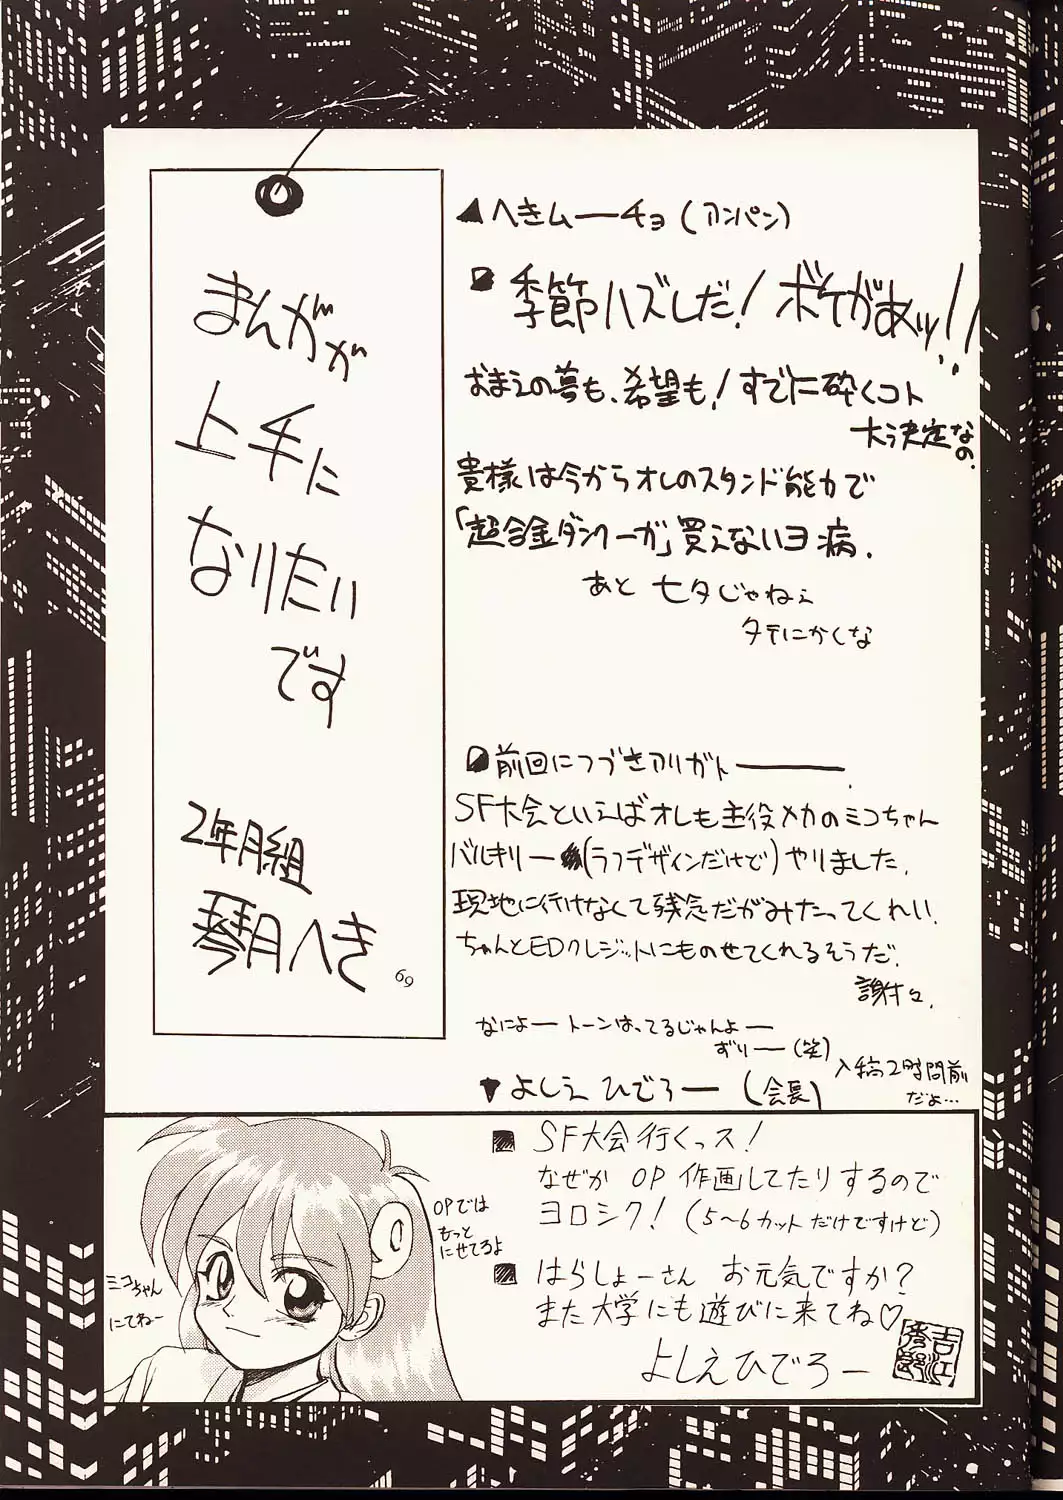 まんがが
上手に
なりたい
です
2年月組
琴月へき
69
▲へきムーチョ(アンパン)
季節ハズレだ!ボケがあッ!!
おまえの夢も、希望も!すでに砕くコト
大決定なの.
貴様は今からオレのスタンド能力で
「超合金ダンクーガ」買えないヨ病.
あと 七夕じゃねぇ
タテにかくな
前回につづきアリガトー.
SF大会といえばオレも主役メカのミコちゃん
バルキリー(ラフデザインだけど)やりました.
現地に行けなくて残念だがみたってくれい.
ちゃんとEDクレジットにものせてくれるそうだ.
謝々.
なによートーンはってるじゃんよー
ずりー(笑)
入稿2時間前
だよ…
▼よしえ ひでろー(会長)
■ SF大会行くっス!
なぜか OP 作画してたりするので
ヨロシク!(5〜6カットだけですけど)
■ はらしょーさん お元気ですか?
また大学にも遊びに来てね♡
よしえひでろー
吉江
OPでは
もっと
にせてろよ
ミコちゃん
にてねー